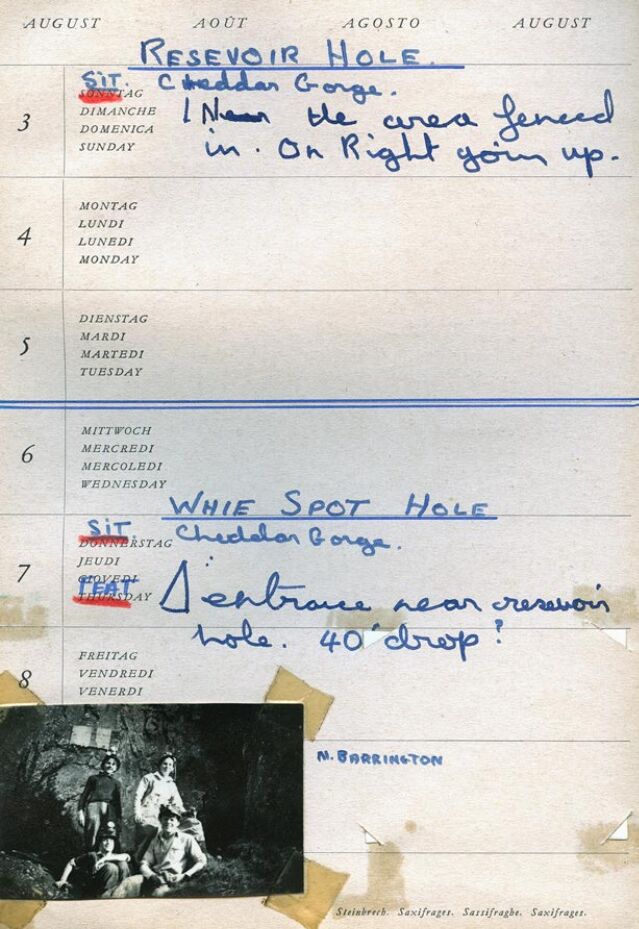 AUGUST AOÛT AGOSTO AUGUST
RESEVOIR HOLE.
SIT. Cheddar Gorge.
SONNTAG
3 DIMANCHE
DOMENICA
SUNDAY
Near the area fenced
in. On Right goin up.
MONTAG
4 LUNDI
LUNEDI
MONDAY
DIENSTAG
5 MARDI
MARTEDI
TUESDAY
MITTWOCH
6 MERCREDI
MERCOLEDI
WEDNESDAY
WHIE SPOT HOLE
SIT. Cheddar Gorge.
DONNERSTAG
7 JEUDI
GIOVEDI
THURSDAY
FEAT entrace near resevoir
hole. 40' drop?
FREITAG
8 VENDREDI
VENERDI
N. BARRINGTON
Steinbrech. Saxifrages. Sassifraghe. Saxifrages.